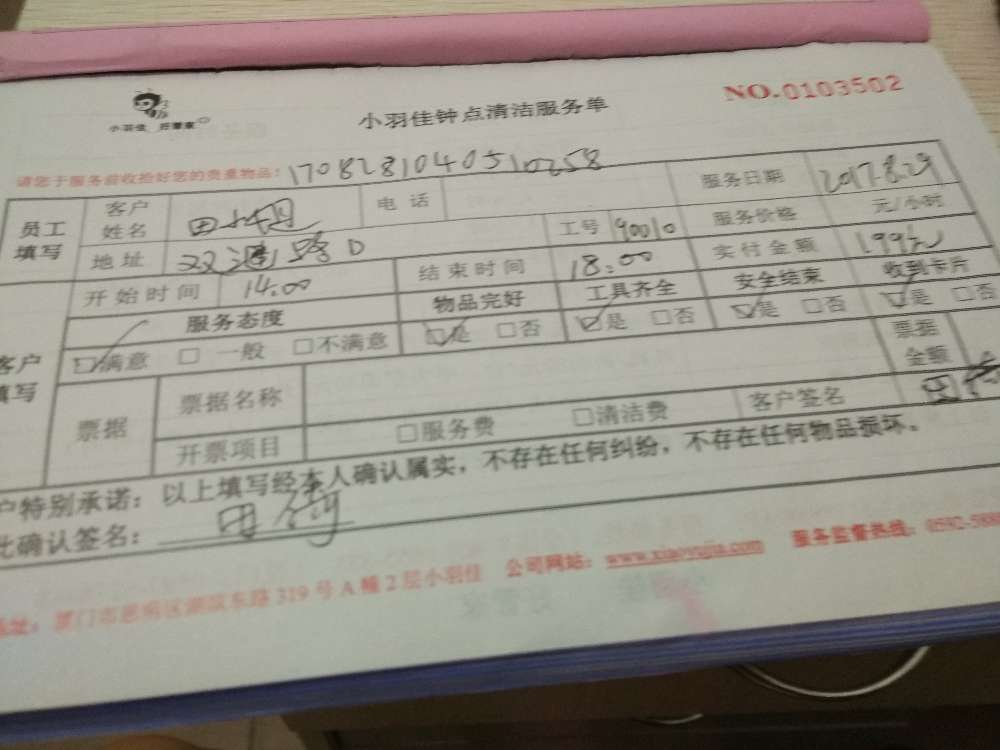 小羽佳 好管家
小羽佳钟点清洁服务单
NO.0103502
请您于服务前收拾好您的贵重物品: 1708281040510258
员工填写 客户姓名 田 电话 服务日期 2017.8.29
地址 双 路 工号 90010 服务价格 元/小时
开始时间 14.00 结束时间 18.00 实付金额 199元
客户填写 服务态度 物品完好 工具齐全 安全结束 收到卡片
☑满意 □一般 □不满意 ☑是 □否 ☑是 □否 ☑是 □否 ☑是 □否
票据 票据名称 票据金额
开票项目 □服务费 □清洁费 客户签名 田
户特别承诺: 以上填写经本人确认属实,不存在任何纠纷,不存在任何物品损坏。
此确认签名: 田
地址: 厦门市思明区湖滨东路 319 号 A 幢 2 层小羽佳 公司网站: www.xiaoyujia.com 服务监督热线: 0592-588